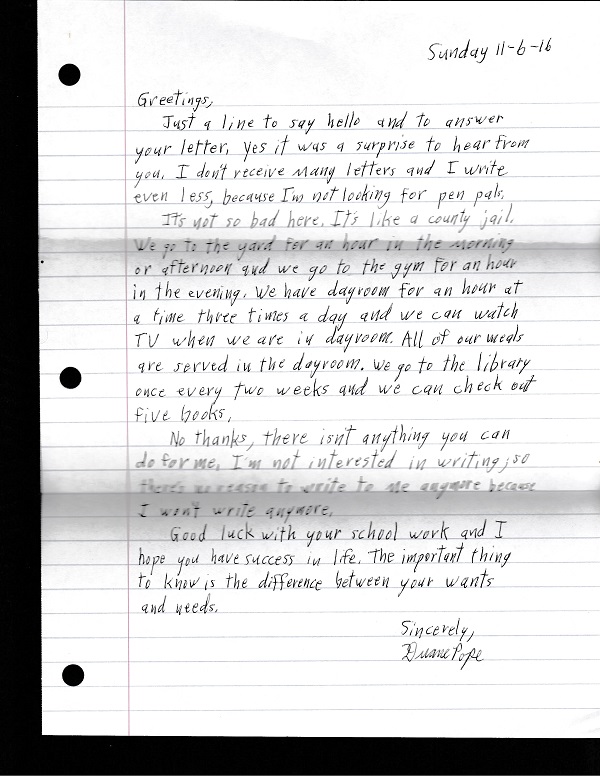 Sunday 11-6-16
Greetings,
Just a line to say hello and to answer
your letter. Yes it was a surprise to hear from
you. I don't receive many letters and I write
even less, because I'm not looking for pen pals.
It's not so bad here. It's like a county jail.
We go to the yard for an hour in the morning
or afternoon and we go to the gym for an hour
in the evening. We have dayroom for an hour at
a time three times a day and we can watch
TV when we are in dayroom. All of our meals
are served in the dayroom. We go to the library
once every two weeks and we can check out
five books.
No thanks, there isn't anything you can
do for me. I'm not interested in writing; so
there's no reason to write to me anymore because
I won't write anymore.
Good luck with your school work and I
hope you have success in life. The important thing
to know is the difference between your wants
and needs.
Sincerely,
Duane Pope